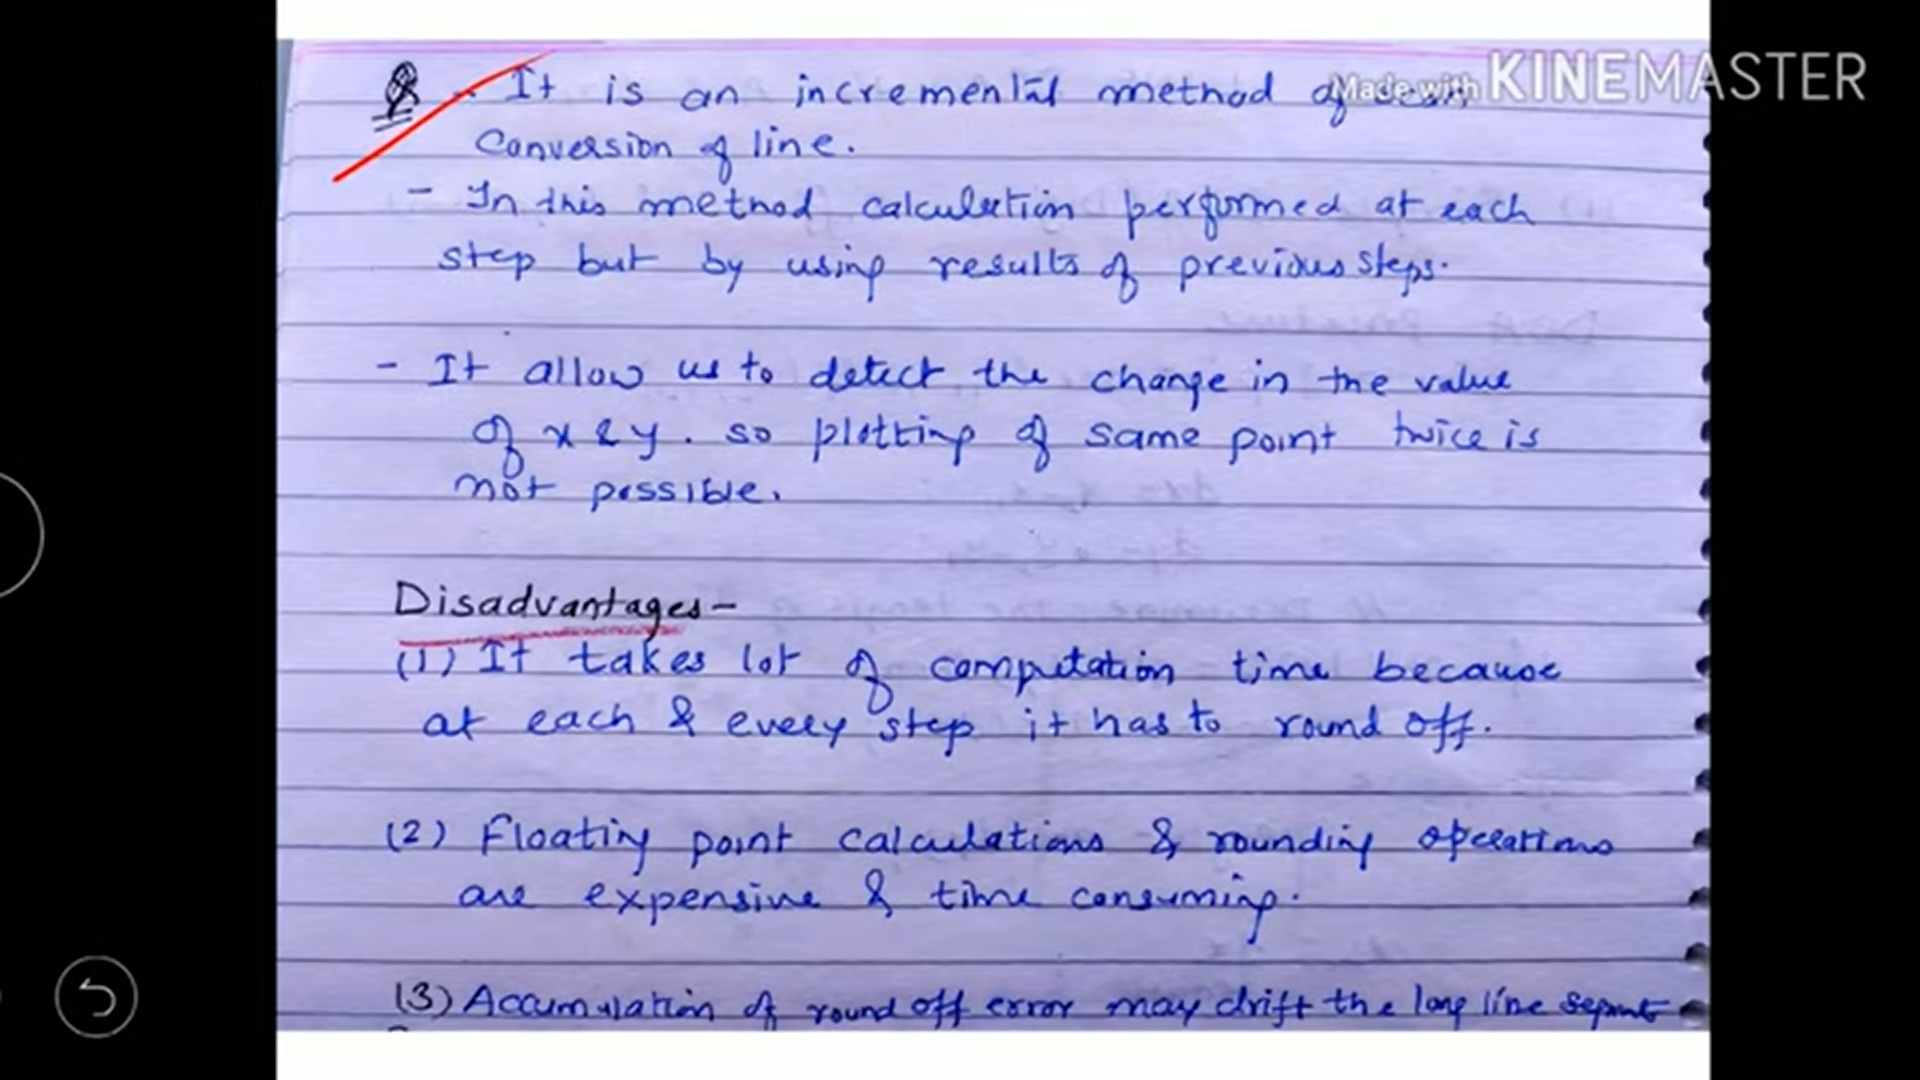 - It is an incremental method of scan
Made with KINEMASTER
Conversion of line.
- In this method calculation performed at each
step but by using results of previous steps.
- It allow us to detect the change in the value
of x & y. so plotting of same point twice is
not possible.
Disadvantages -
(1) It takes lot of computation time because
at each & every step it has to round off.
(2) Floating point calculations & rounding operations
are expensive & time consuming.
(3) Accumulation of round off error may drift the long line